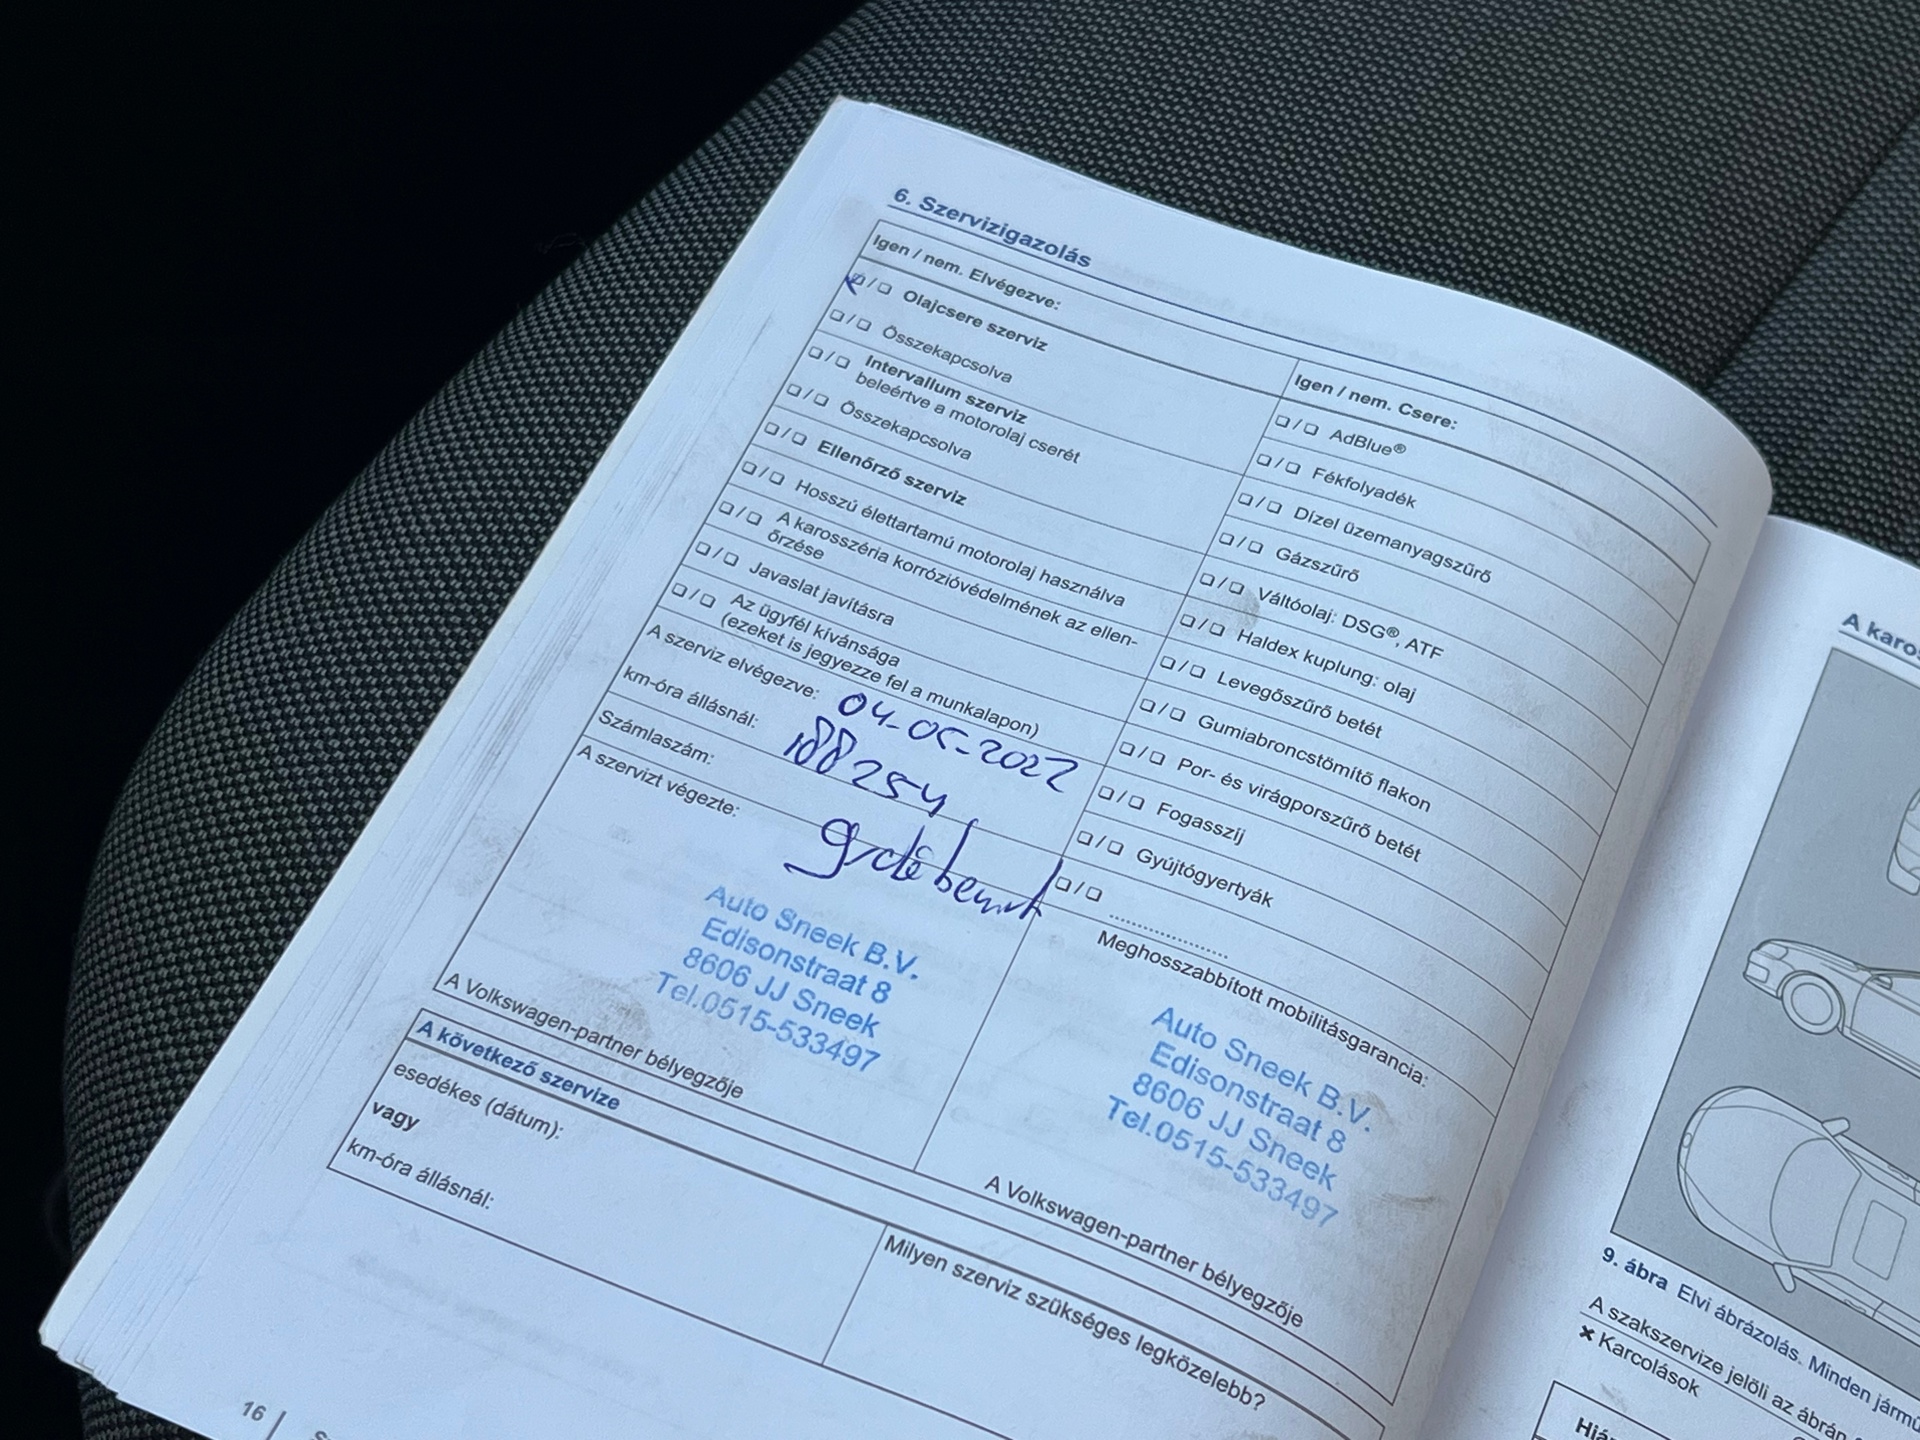 6. Szervizigazolás
Igen / nem. Elvégezve:
❏ / ❏ Olajcsere szerviz
❏ / ❏ Összekapcsolva
❏ / ❏ Intervallum szerviz
beleértve a motorolaj cserét
❏ / ❏ Összekapcsolva
❏ / ❏ Ellenőrző szerviz
❏ / ❏ Hosszú élettartamú motorolaj használva
❏ / ❏ A karosszéria korrózióvédelmének az ellen-
őrzése
❏ / ❏ Javaslat javításra
❏ / ❏ Az ügyfél kívánsága
(ezeket is jegyezze fel a munkalapon)
A szerviz elvégezve: 04-05-2022
km-óra állásnál: 188254
Számlaszám:
A szervizt végezte:
Auto Sneek B.V.
Edisonstraat 8
8606 JJ Sneek
Tel.0515-533497
A Volkswagen-partner bélyegzője
Igen / nem. Csere:
❏ / ❏ AdBlue®
❏ / ❏ Fékfolyadék
❏ / ❏ Dízel üzemanyagszűrő
❏ / ❏ Gázszűrő
❏ / ❏ Váltóolaj: DSG®, ATF
❏ / ❏ Haldex kuplung: olaj
❏ / ❏ Levegőszűrő betét
❏ / ❏ Gumiabroncstömítő flakon
❏ / ❏ Por- és virágporszűrő betét
❏ / ❏ Fogasszíj
❏ / ❏ Gyújtógyertyák
❏ / ❏ ....................
Meghosszabbított mobilitásgarancia:
Auto Sneek B.V.
Edisonstraat 8
8606 JJ Sneek
Tel.0515-533497
A Volkswagen-partner bélyegzője
A következő szervize
esedékes (dátum):
vagy
km-óra állásnál:
Milyen szerviz szükséges legközelebb?
16
A karos
9. ábra Elvi ábrázolás. Minden jármű
A szakszervize jelöli az ábrán
✖ Karcolások